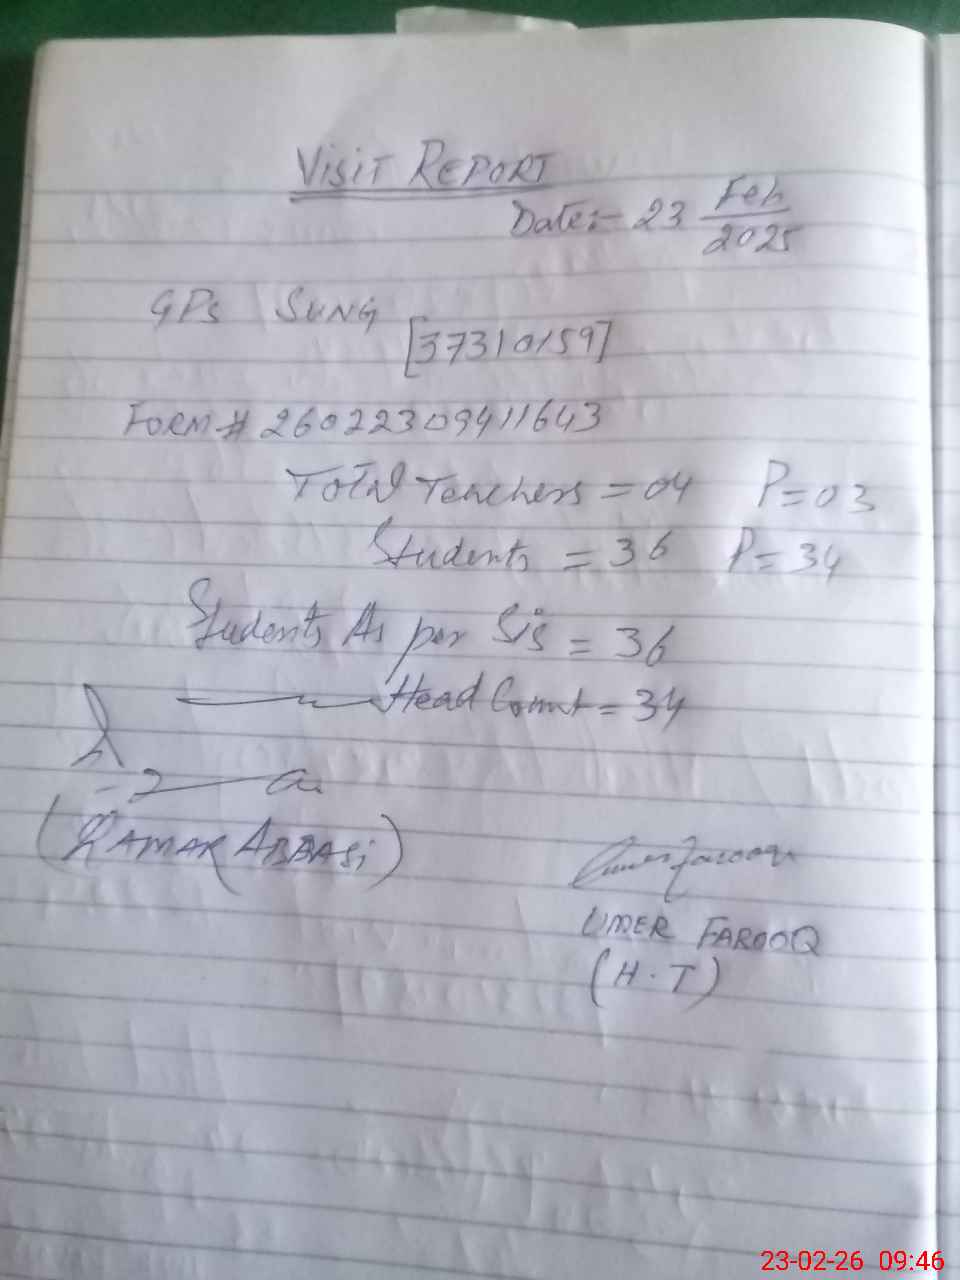 VISIT REPORT
Date:- 23 Feb
2025
GPS SUNG
[37310159]
FORM# 26022309411643
Total Teachers = 04 P=03
Students = 36 P=34
Students As per Sis = 36
Head Count = 34
(QAMAR ABBASi)
Umer Farooq
UMER FAROOQ
(H.T)
23-02-26 09:46